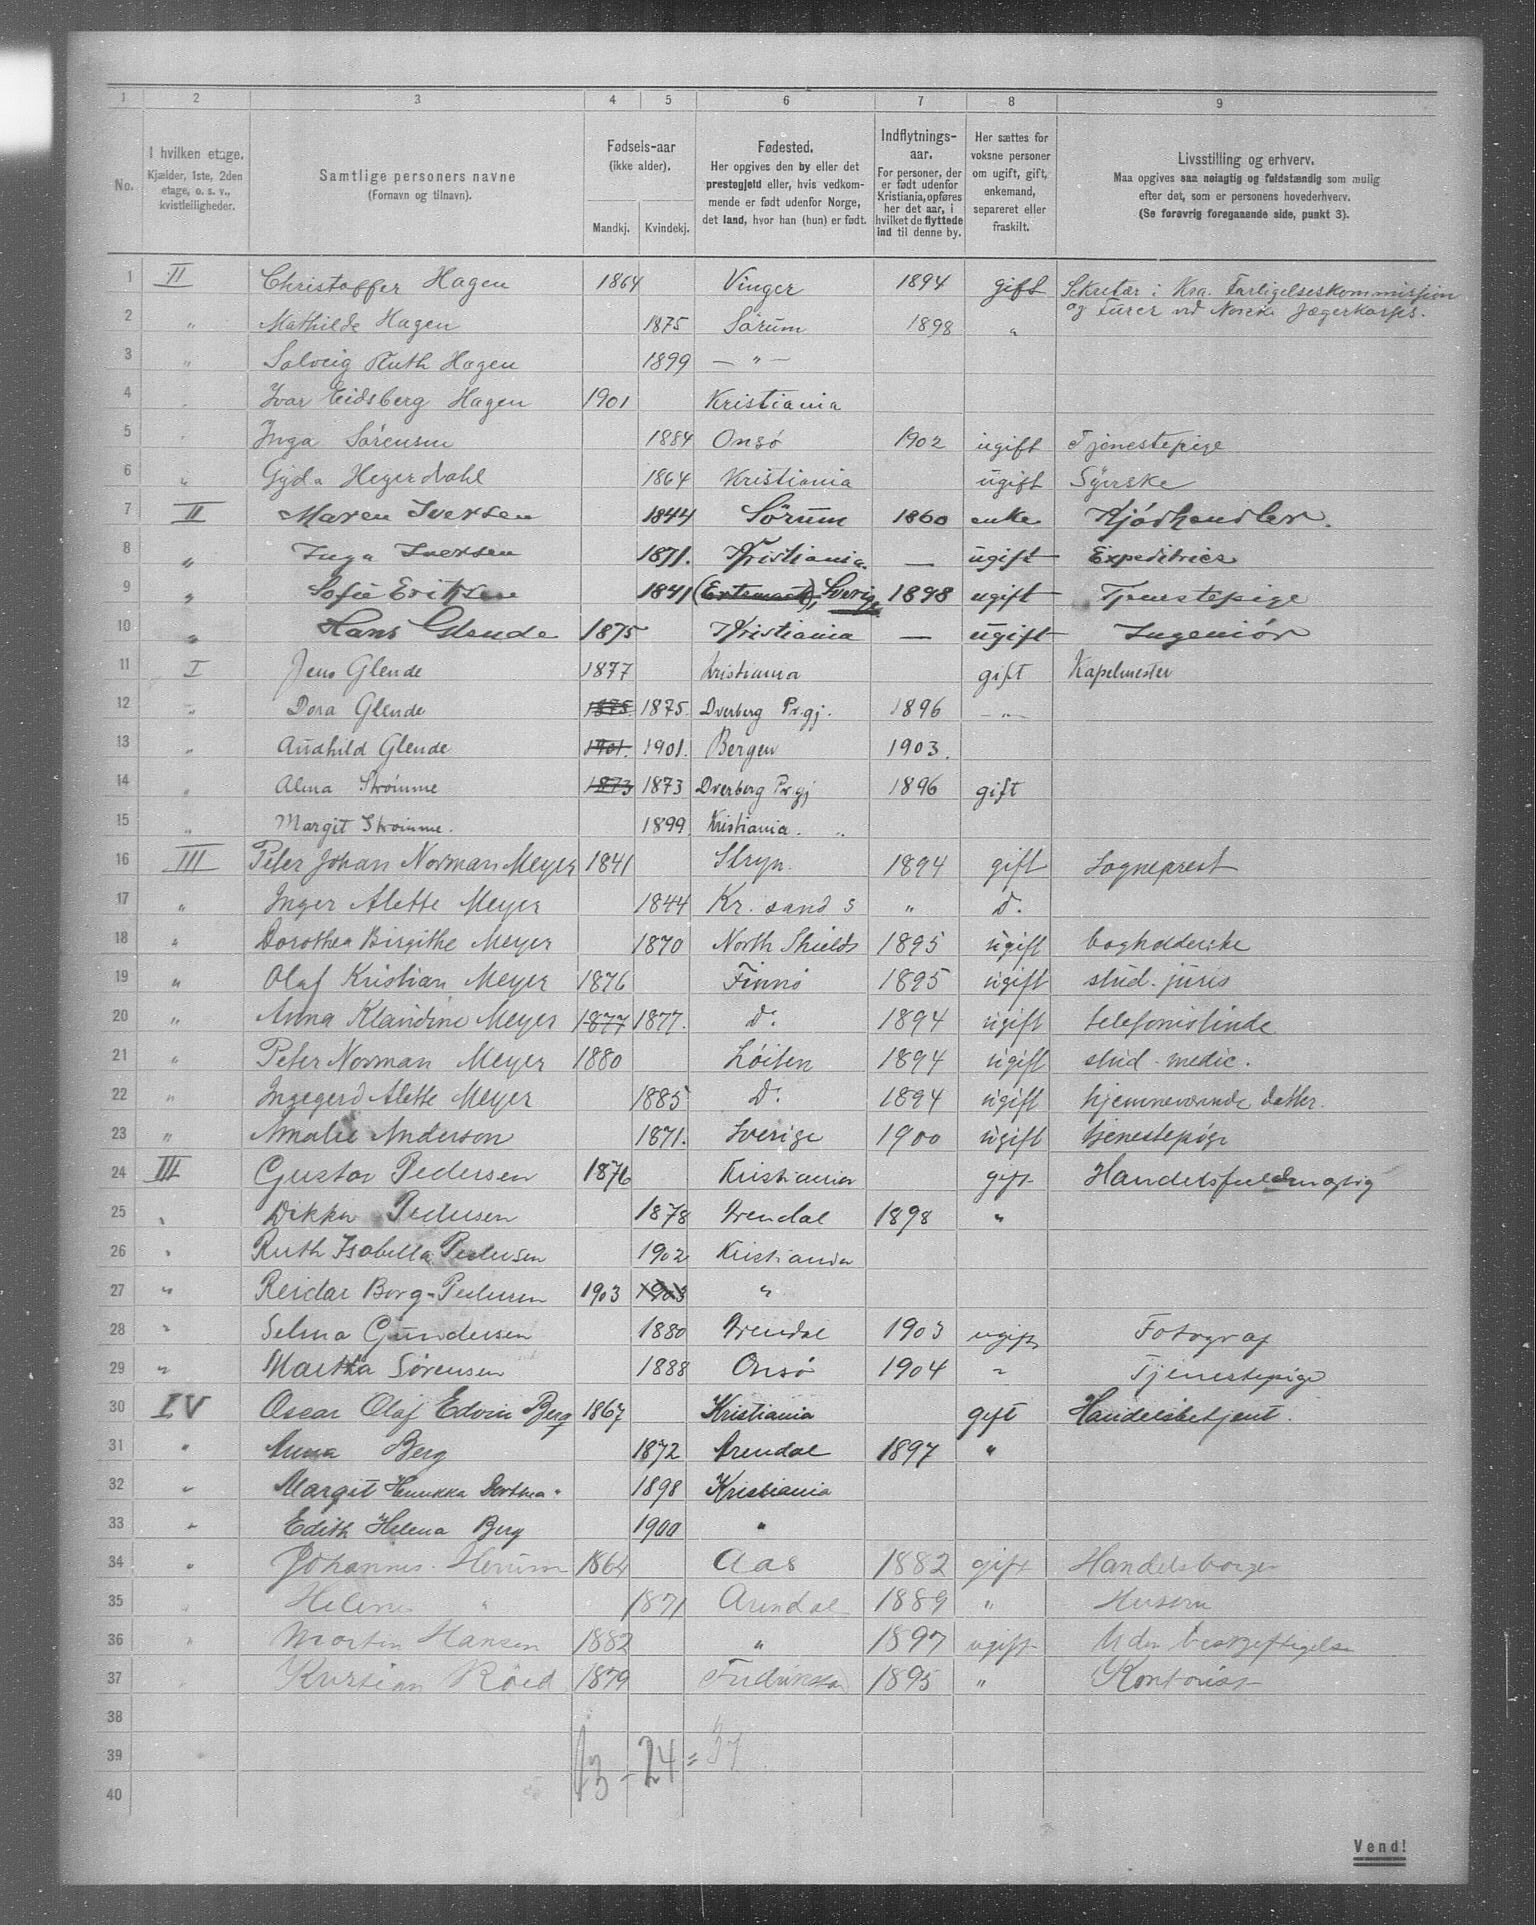 1 2 3 4 5 6 7 8 9
No.
I hvilken etage.
Kjælder, 1ste, 2den
etage, o. s. v.,
kvistleiligheder.
Samtlige personers navne
(Fornavn og tilnavn).
Fødsels-aar
(ikke alder).
Mandkj. Kvindekj.
Fødested.
Her opgives den by eller det
prestegjeld eller, hvis vedkom-
mende er født udenfor Norge,
det land, hvor han (hun) er født.
Indflytnings-
aar.
For personer, der
er født udenfor
Kristiania, opføres
her det aar, i
hvilket de flyttede
ind til denne by.
Her sættes for
voksne personer
om ugift, gift,
enkemand,
separeret eller
fraskilt.
Livsstilling og erhverv.
Maa opgives saa nøiagtig og fuldstændig som mulig
efter det, som er personens hovederhverv.
(Se forøvrig foregaaende side, punkt 3).
1 II Christoffer Hagen 1864 Vinger 1894 gift Sekretær i Kra. Forligelseskommission
og Furer ved Norske Jægerkorps.
2 " Mathilde Hagen 1875 Sørum 1898 "
3 " Solveig Ruth Hagen 1899 — " —
4 " Ivar Eidsberg Hagen 1901 Kristiania
5 " Inga Sørensen 1884 Onsö 1902 ugift Tjenestepige
6 " Gyda Hegerdahl 1864 Kristiania ugift Syerske
7 II Maren Iversen 1844 Sørum 1860 enke Kjødhandler.
8 " Inga Iversen 1871. Kristiania. — ugift Expeditrice
9 " Sofie Eriksen 1841 Sverige 1898 ugift Tjenestepige
10 " Hans Glende 1875 Kristiania — ugift Ingeniør
11 I Jens Glende 1877 Kristiania gift Kapelmester
12 " Dora Glende 1875 1875. Dverberg Pr.gj. 1896 — " —
13 " Audhild Glende 1901. 1901. Bergen 1903.
14 " Alma Strømme 1873 1873 Dverberg Pr.gj 1896 gift
15 " Margit Strømme. 1899 Kristiania. "
16 III Peter Johan Norman Meyer 1841 Stryn. 1894 gift Sogneprest
17 " Inger Alette Meyer 1844 Kr. sand S " D.
18 " Dorothea Birgithe Meyer 1870 North Shields 1895 ugift bogholderske
19 " Olaf Kristian Meyer 1876 Finnö 1895 ugift stud. juris
20 " Anna Klaudine Meyer 1877 1877. D. 1894 ugift telefonistinde
21 " Peter Norman Meyer 1880 Løiten 1894 ugift stud. medic.
22 " Ingegerd Alette Meyer 1885 D. 1894 ugift hjemmeværende datter.
23 " Amalie Anderson 1871. Sverige 1900 ugift tjenestepige
24 III Gustav Pedersen 1876 Kristiania gift Handelsfuldmægtig
25 " Dikka Pedersen 1878 Arendal 1898 "
26 " Ruth Isabella Pedersen 1902 Kristiania
27 " Reidar Borg-Pedersen 1903 1903 "
28 " Selma Gundersen 1880 Arendal 1903 ugift Fotograf
29 " Martha Sørensen 1888 Onsö 1904 " Tjenestepige
30 IV Oscar Olaf Edvin Berg 1867 Kristiania gift Handelsbetjent.
31 " Anna Berg 1872 Arendal 1897 "
32 " Margit Dorthea " 1898 Kristiania
33 " Edith Helena Berg 1900 "
34 " Johannes Herum 1864 Aas 1882 gift Handelsborger
35 " Helene " 1871 Arendal 1889 " Husom
36 " Morten Hansen 1882 " 1897 ugift Uden beskjeftigelse
37 Kristian Röed 1879 Fredriksstad 1895 " Kontorist
38
39 13 - 24 = 37
40
Vend!